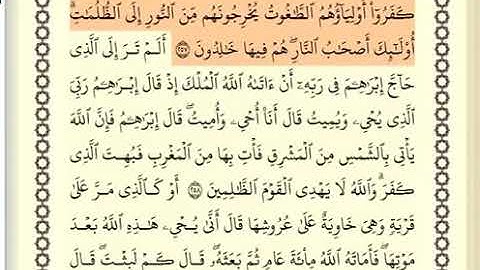 كَفَرُوٓا۟ أَوْلِيَآؤُهُمُ ٱلطَّٰغُوتُ يُخْرِجُونَهُم مِّنَ ٱلنُّورِ إِلَى ٱلظُّلُمَٰتِ ۗ
أُو۟لَٰٓئِكَ أَصْحَٰبُ ٱلنَّارِ ۖ هُمْ فِيهَا خَٰلِدُونَ ٢٥٧ أَلَمْ تَرَ إِلَى ٱلَّذِى
حَآجَّ إِبْرَٰهِۦمَ فِى رَبِّهِۦٓ أَنْ ءَاتَىٰهُ ٱللَّهُ ٱلْمُلْكَ إِذْ قَالَ إِبْرَٰهِۦمُ رَبِّىَ
ٱلَّذِى يُحْىِۦ وَيُمِيتُ قَالَ أَنَا۠ أُحْىِۦ وَأُمِيتُ ۖ قَالَ إِبْرَٰهِۦمُ فَإِنَّ ٱللَّهَ
يَأْتِى بِٱلشَّمْسِ مِنَ ٱلْمَشْرِقِ فَأْتِ بِهَا مِنَ ٱلْمَغْرِبِ فَبُهِتَ ٱلَّذِى
كَفَرَ ۗ وَٱللَّهُ لَا يَهْدِى ٱلْقَوْمَ ٱلظَّٰلِمِينَ ٢٥٨ أَوْ كَٱلَّذِى مَرَّ عَلَىٰ
قَرْيَةٍ وَهِىَ خَاوِيَةٌ عَلَىٰ عُرُوشِهَا قَالَ أَنَّىٰ يُحْىِۦ هَٰذِهِ ٱللَّهُ بَعْدَ
مَوْتِهَا ۖ فَأَمَاتَهُ ٱللَّهُ مِا۟ئَةَ عَامٍ ثُمَّ بَعَثَهُۥ ۖ قَالَ كَمْ لَبِثْتَ ۖ قَالَ